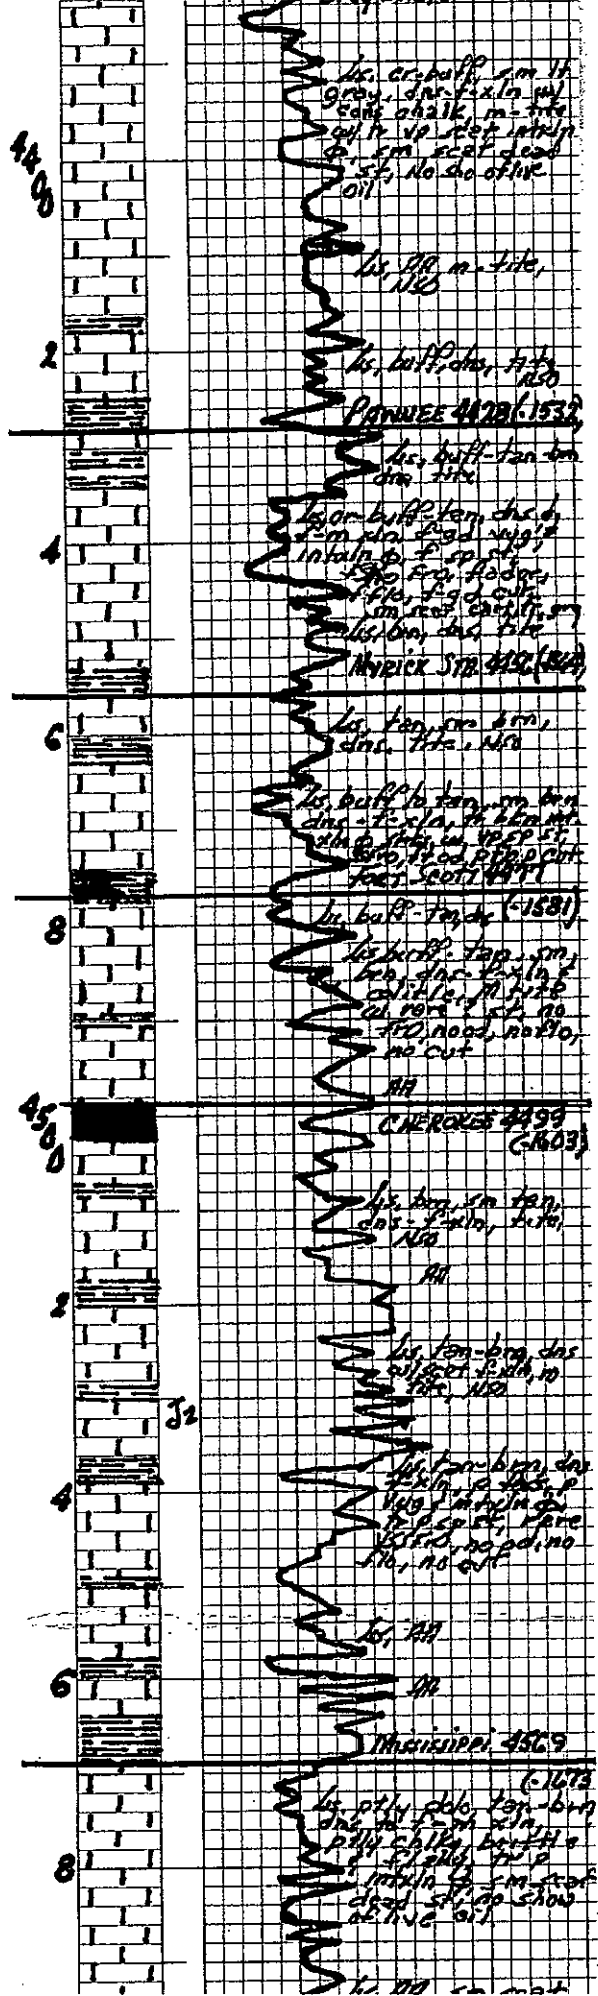 Ls, cr-buff, sm lt
gray, dns-f-xln w/
cons chalk m-tite
w/ tr vp scat intxln
φ, sm scat dead
st, No sho of live
oil
4400
Ls, AA m-tite,
NSO
2
Ls, buff, dns, tite
NSO
PAWNEE 4428 (-1532)
Ls, buff-tan-brn
dns tite
4
Ls cr-buff-tan, dns
f-m xln, f-gd vug
intxln φ, f sp st,
FO,
flo, f-gd cut,
sm scat
Ls, brn, dns, tite
MYRICK STA. 4456
6
Ls, tan, sm brn,
dns, tite, NSO
Ls, buff to tan, sm brn
dns-f-xln,
w/ vp sp st,
cut
FORT SCOTT 4477
(-1581)
8
Ls, buff-tan, dns
Ls buff-tan, sm
brn, dns-f-xln
m tite
w/ rare st, no
FO, no od, no flo,
no cut
AA
4500
CHEROKEE 4499
(-1603)
Ls, brn, sm tan,
dns-f-xln, tite,
NSO
AA
2
Ls, tan-brn, dns
w/ scat f-xln, m
tite, NSO
J2
4
Ls tan-brn, dns
f-xln, p
vug / intxln φ,
tr p sp st, rare
VSSFO, no od, no
flo, no cut
Ls, AA
6
AA
Mississippi 4569
(-1673
Ls, ptly dolo, tan-brn
dns to f-m xln,
ptly chlky, brittle
tr p
intxln φ, sm scat
dead st, no show
of live oil
8
Ls AA, sm scat